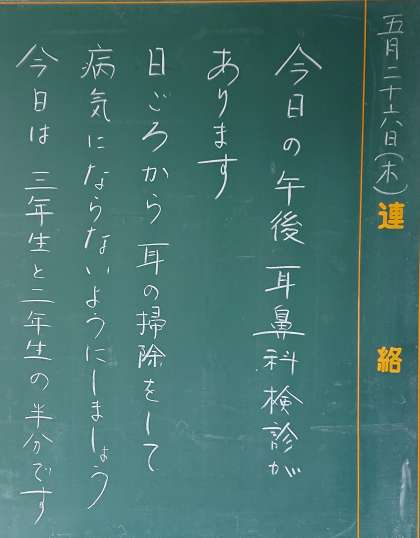 五月二十六日(木)
連絡
今日の午後耳鼻科検診が
あります
日ごろから耳の掃除をして
病気にならないようにしましょう
今日は三年生と二年生の半分です